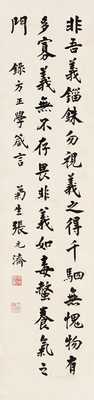 非吾義錙銖勿視義之得千駟無愧物有
多寡義無不存畏非義如毒螫養氣之
門
錄方正學箴言
菊生張元濟